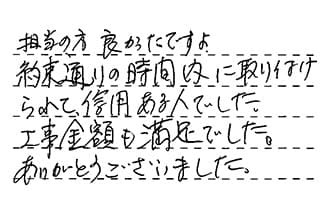 担当の方 良かったですよ
約束通りの時間内に取り付け
られて、信用ある人でした。
工事金額も満足でした。
ありがとうございました。